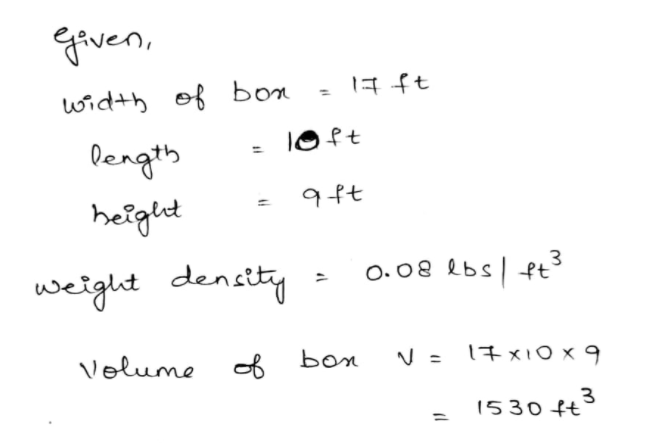 Given,
width of box = 17 ft
length = 10 ft
height = 9 ft
weight density = 0.08 lbs/ft³
Volume of box V = 17 x 10 x 9
= 1530 ft³